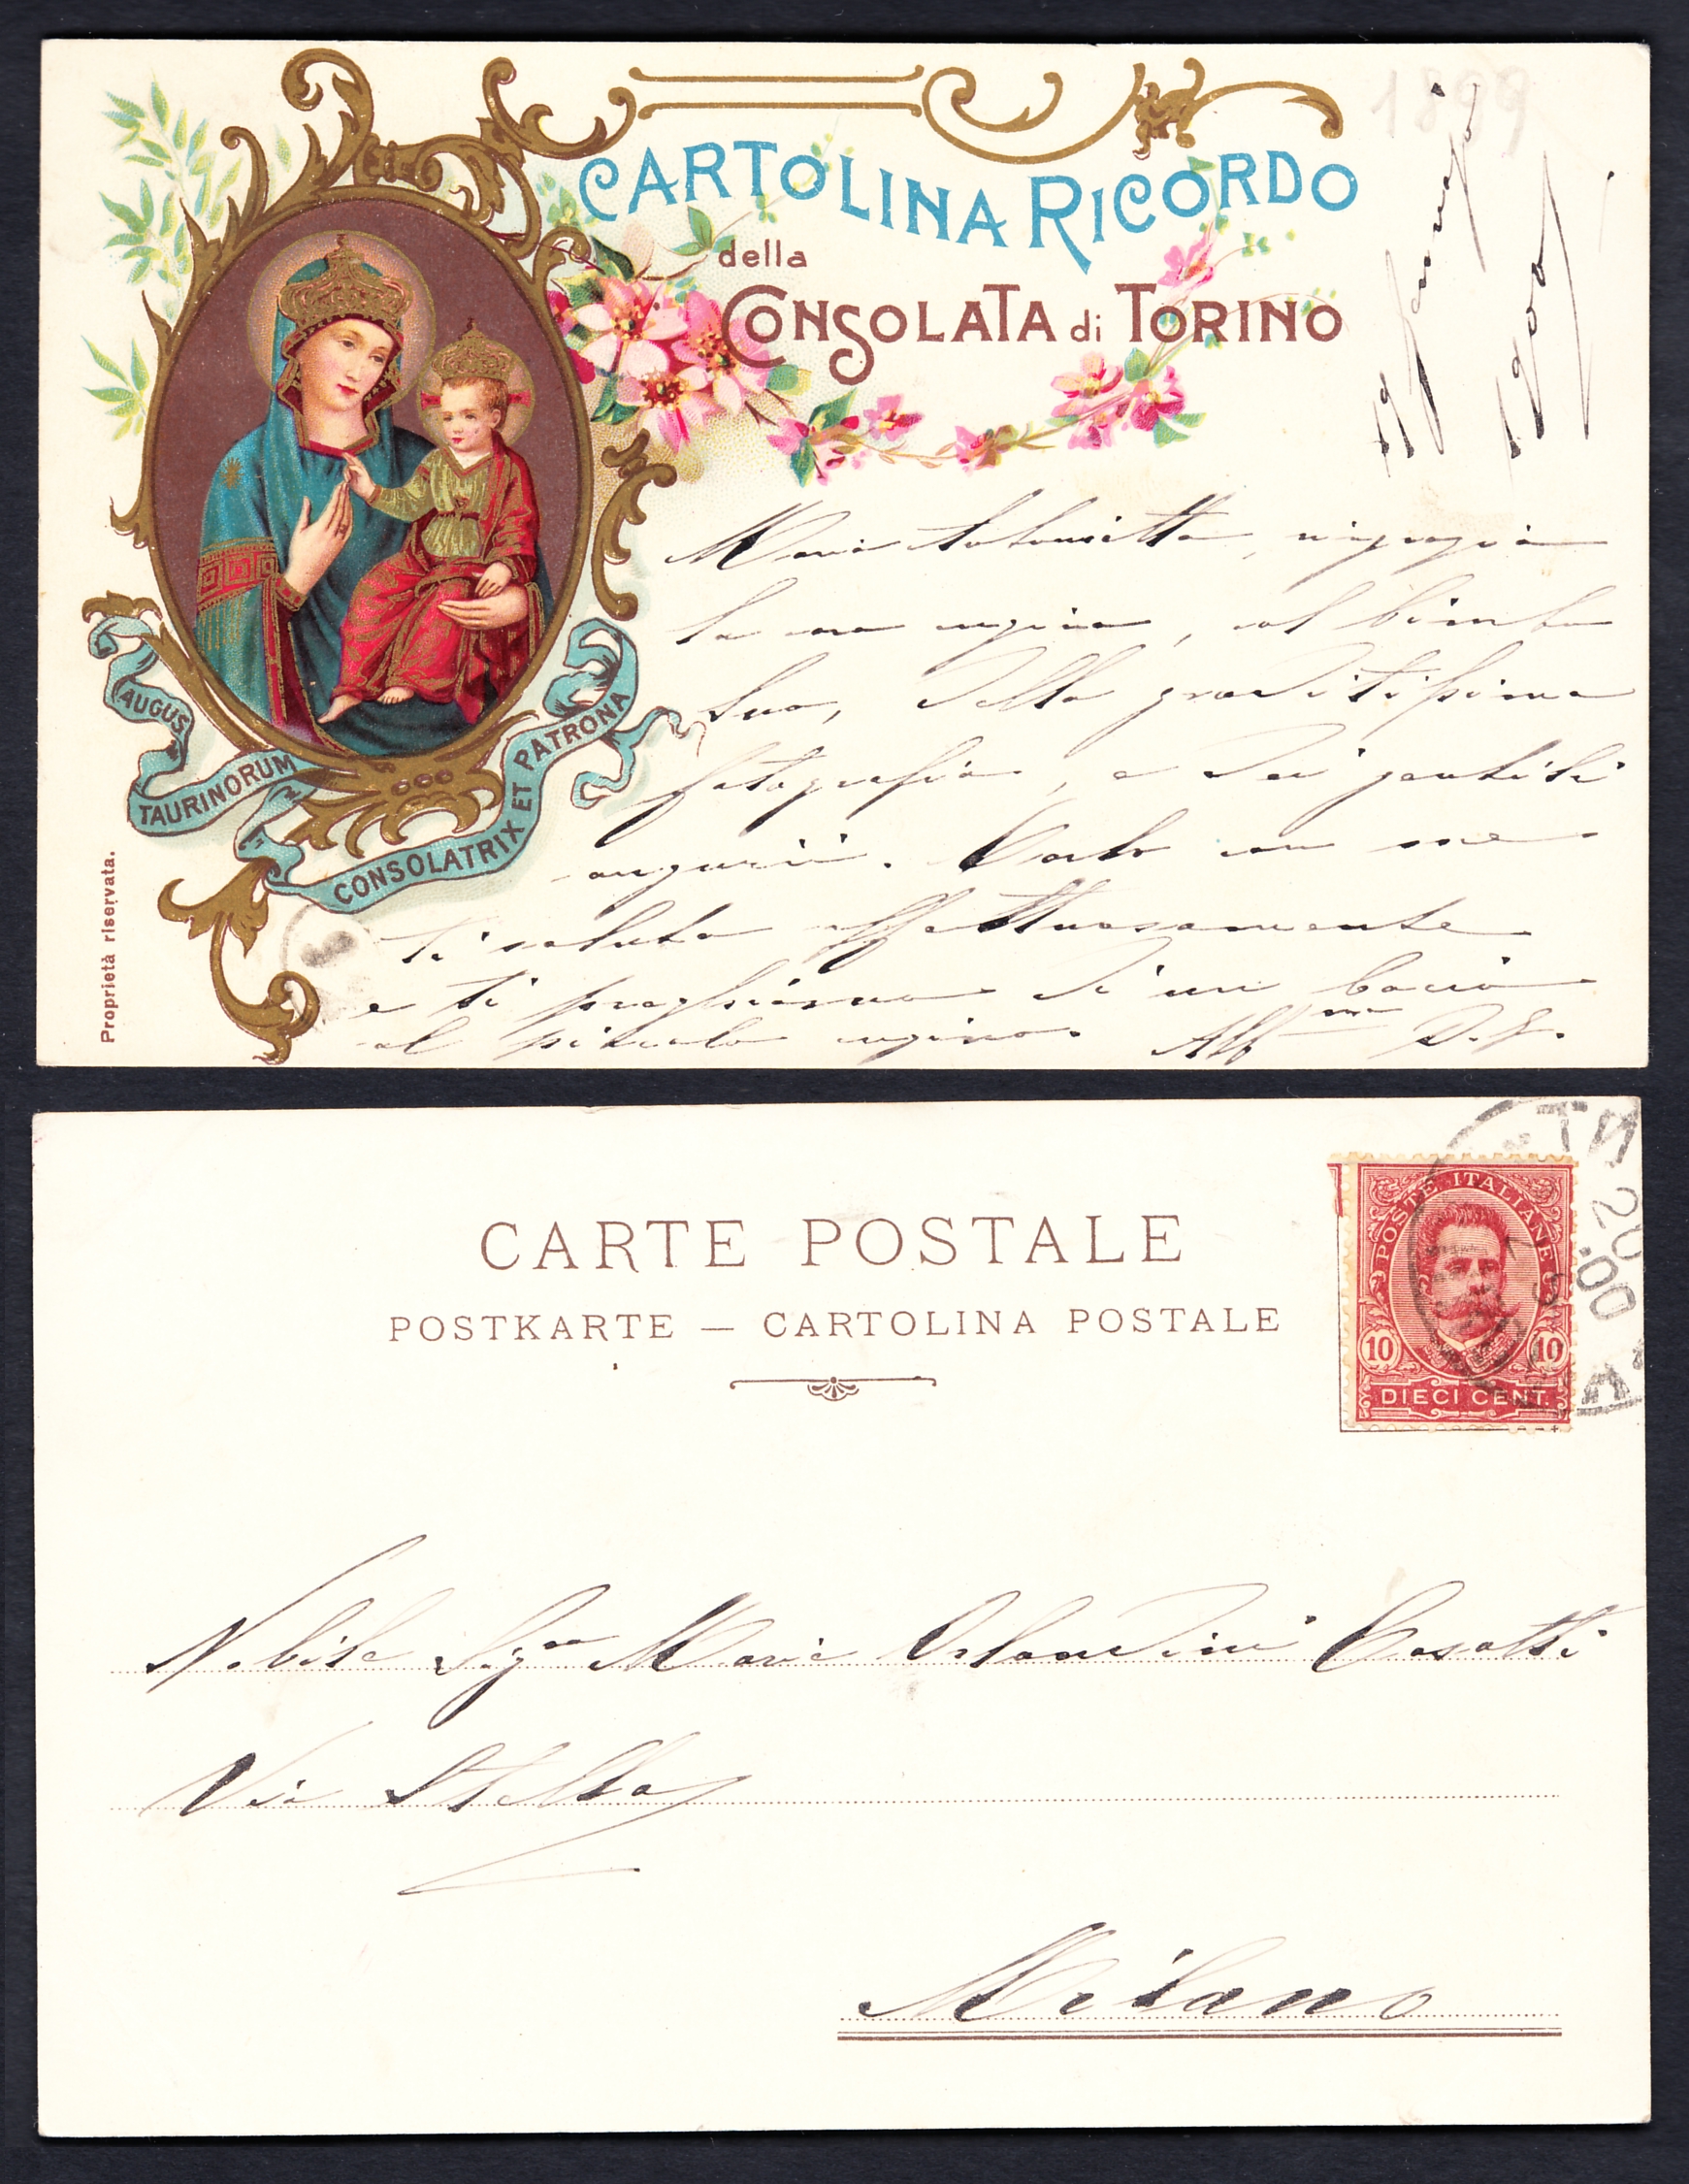 1899
CARTOLINA RICORDO
della
CONSOLATA di TORINO
19 gennaio
1900
AUGUS
TAURINORUM
CONSOLATRIX ET PATRONA
Proprietà riservata.
Maria Antonietta, ringrazia
la cugina, col bimbo
suo, della graditissima
fotografia, e dei gentili
augurii. Carlo con me
ti saluta affettuosamente
e ti preghiamo di un bacio
al piccolo cugino. Aff.ma D. E.
CARTE POSTALE
POSTKARTE — CARTOLINA POSTALE
POSTE ITALIANE
10 10
DIECI CENT.
20
1
00
Nobile Sig.ra Maria Orlandini Casatti
Via Stella
Milano